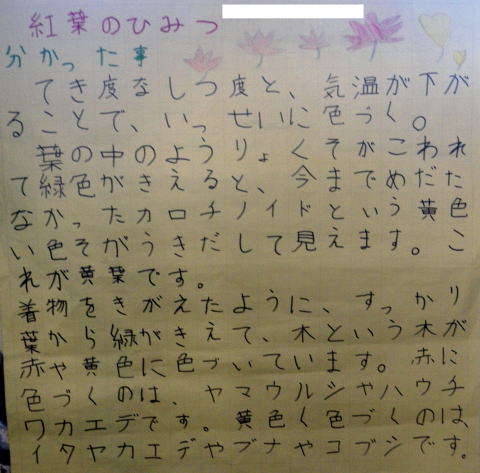 紅葉のひみつ
分かった事
てき度なしつ度と、気温が下が
ることで、いっせいに色づく。
葉の中のようりょくそがこわれ
て緑色がきえると、今までめだた
なかったカロチノイドという黄色
い色そがうきだして見えます。こ
れが黄葉です。
着物をきがえたように、すっかり
葉から緑がきえて、木という木が
赤や黄色に色づいています。赤に
色づくのは、ヤマウルシやハウチ
ワカエデです。黄色く色づくのは、
イタヤカエデやブナやコブシです。